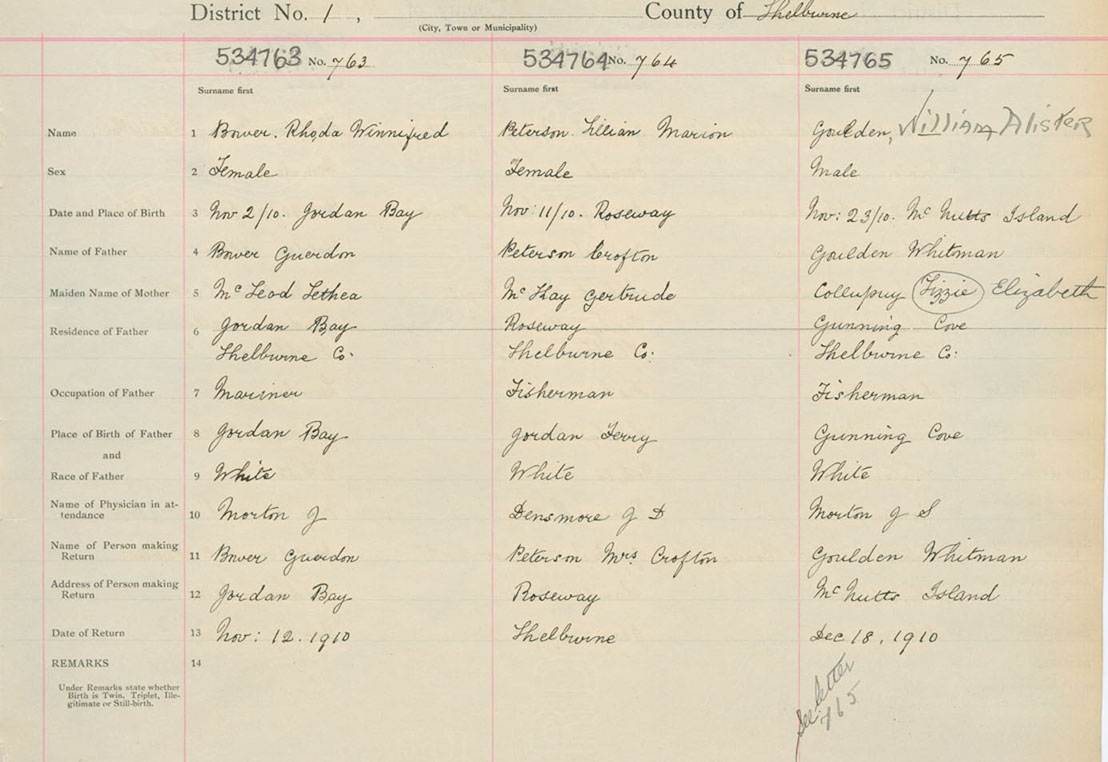 District No. 1, County of Shelburne
(City, Town or Municipality)
534763 No. 763 534764 No. 764 534765 No. 765
Surname first Surname first Surname first
Name 1 Bower. Rhoda Winnifred Peterson Lillian Marion Goulden, William Alister
Sex 2 Female Female Male
Date and Place of Birth 3 Nov 2/10. Jordan Bay Nov: 11/10. Roseway Nov: 23/10. McNutts Island
Name of Father 4 Bower Guerdon Peterson Crofton Goulden Whitman
Maiden Name of Mother 5 McLeod Lethea McKay Gertrude Collupuy Lizzie Elizabeth
Residence of Father 6 Jordan Bay Roseway Gunning Cove
Shelburne Co: Shelburne Co: Shelburne Co:
Occupation of Father 7 Mariner Fisherman Fisherman
Place of Birth of Father 8 Jordan Bay Jordan Ferry Gunning Cove
and
Race of Father 9 White White White
Name of Physician in at-
tendance 10 Morton J Densmore J D Morton J S
Name of Person making
Return 11 Bower Guerdon Peterson Mrs. Crofton Goulden Whitman
Address of Person making
Return 12 Jordan Bay Roseway McNutts Island
Date of Return 13 Nov: 12. 1910 Shelburne Dec 18, 1910
REMARKS 14
Under Remarks state whether
Birth is Twin, Triplet, Ille-
gitimate or Still-birth.
See letter
765